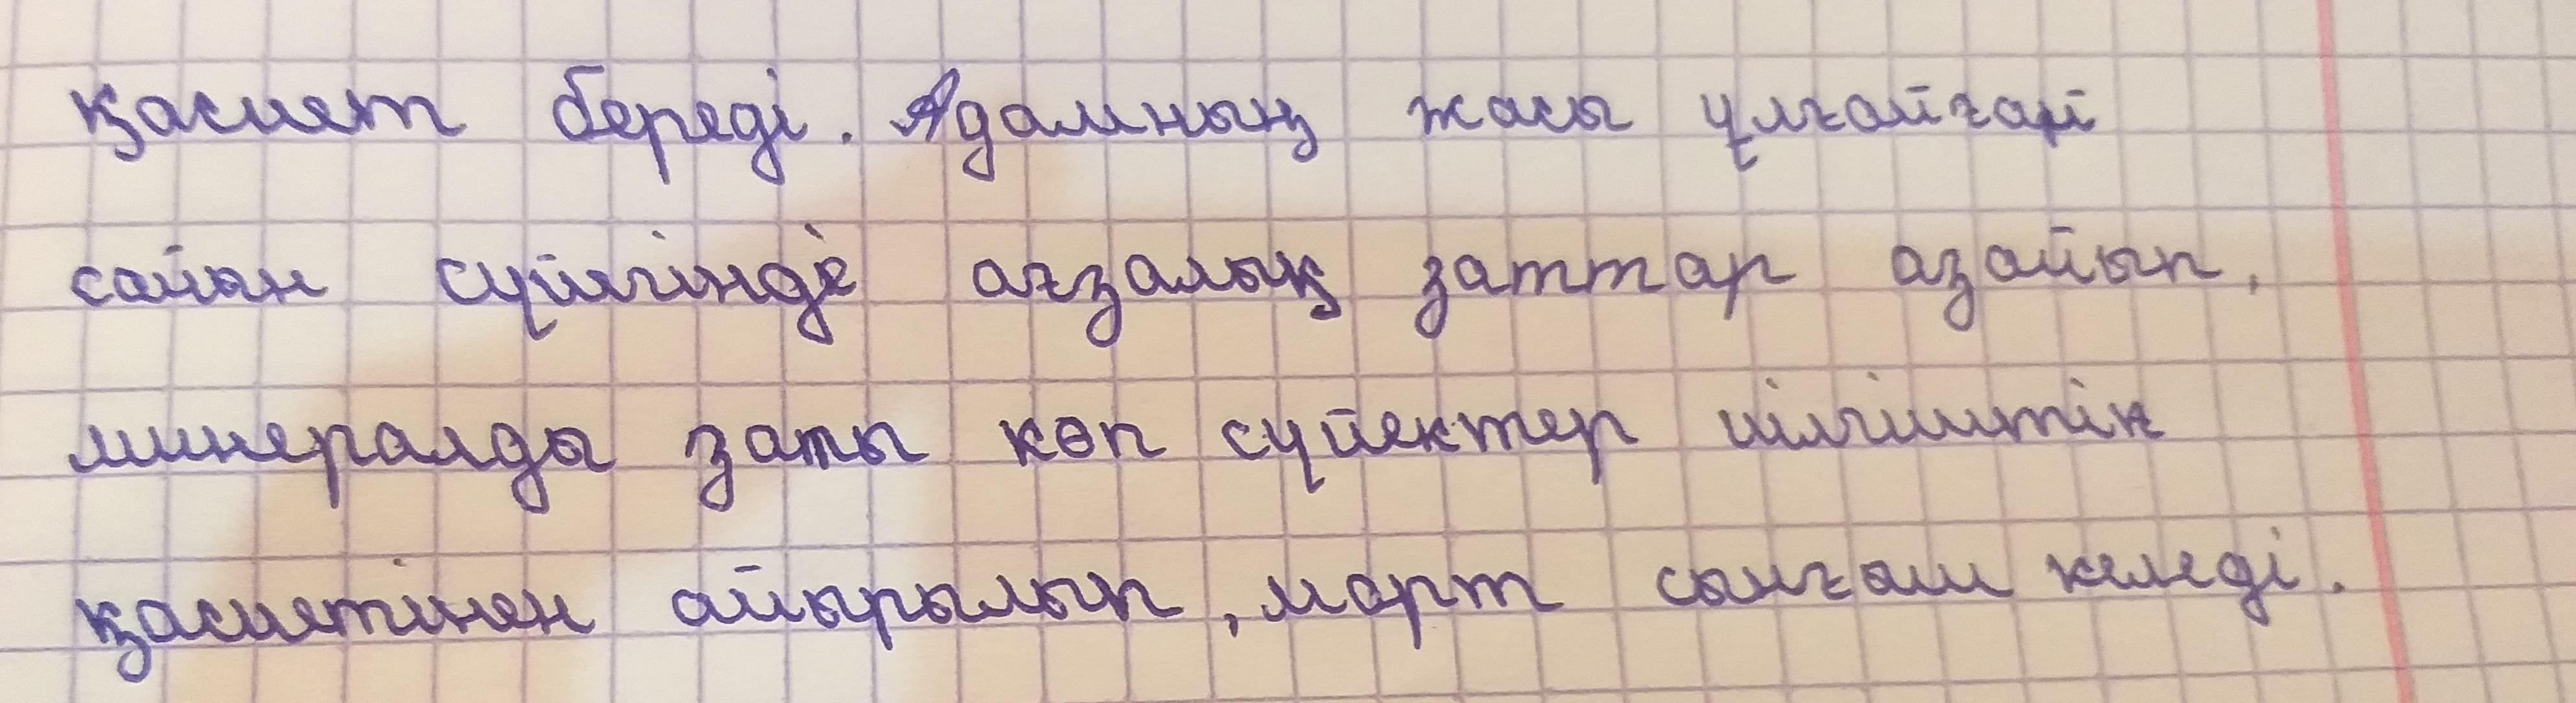 қасиет береді. Адамның жасы ұлғайған
сайын сүйегінде ағзалық заттар азайып,
минералды заты көп сүйектер иілгіштік
қасиетінен айырылып, морт сынғыш келеді.